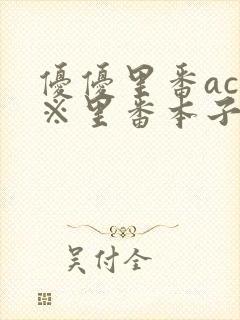 優優里番ac
※里番本子
吴付全